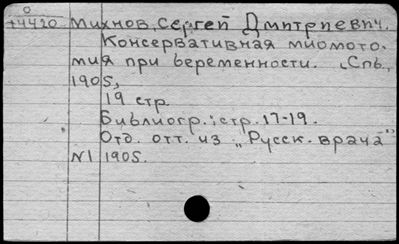 0
+4420 Михнов, Сергей Дмитриевич.
Консервативная миомото-
мия при беременности. [Спб.,
1905,
19 стр.
Библиогр.: стр. 17-19.
Отд. отт. из "Русск. врача"
N1 1905.